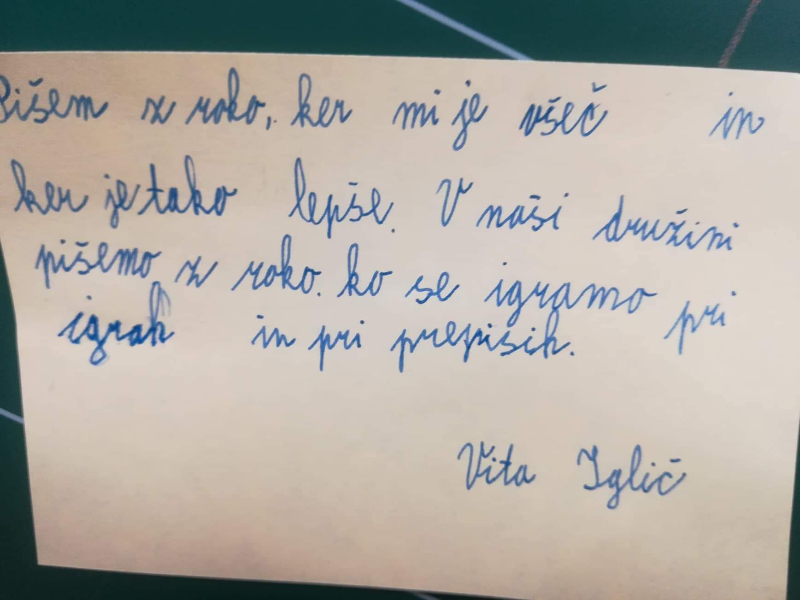 Pišem z roko, ker mi je všeč in
ker je tako lepše. V naši družini
pišemo z roko. ko se igramo pri
igrah in pri prepisih.
Vita Iglič